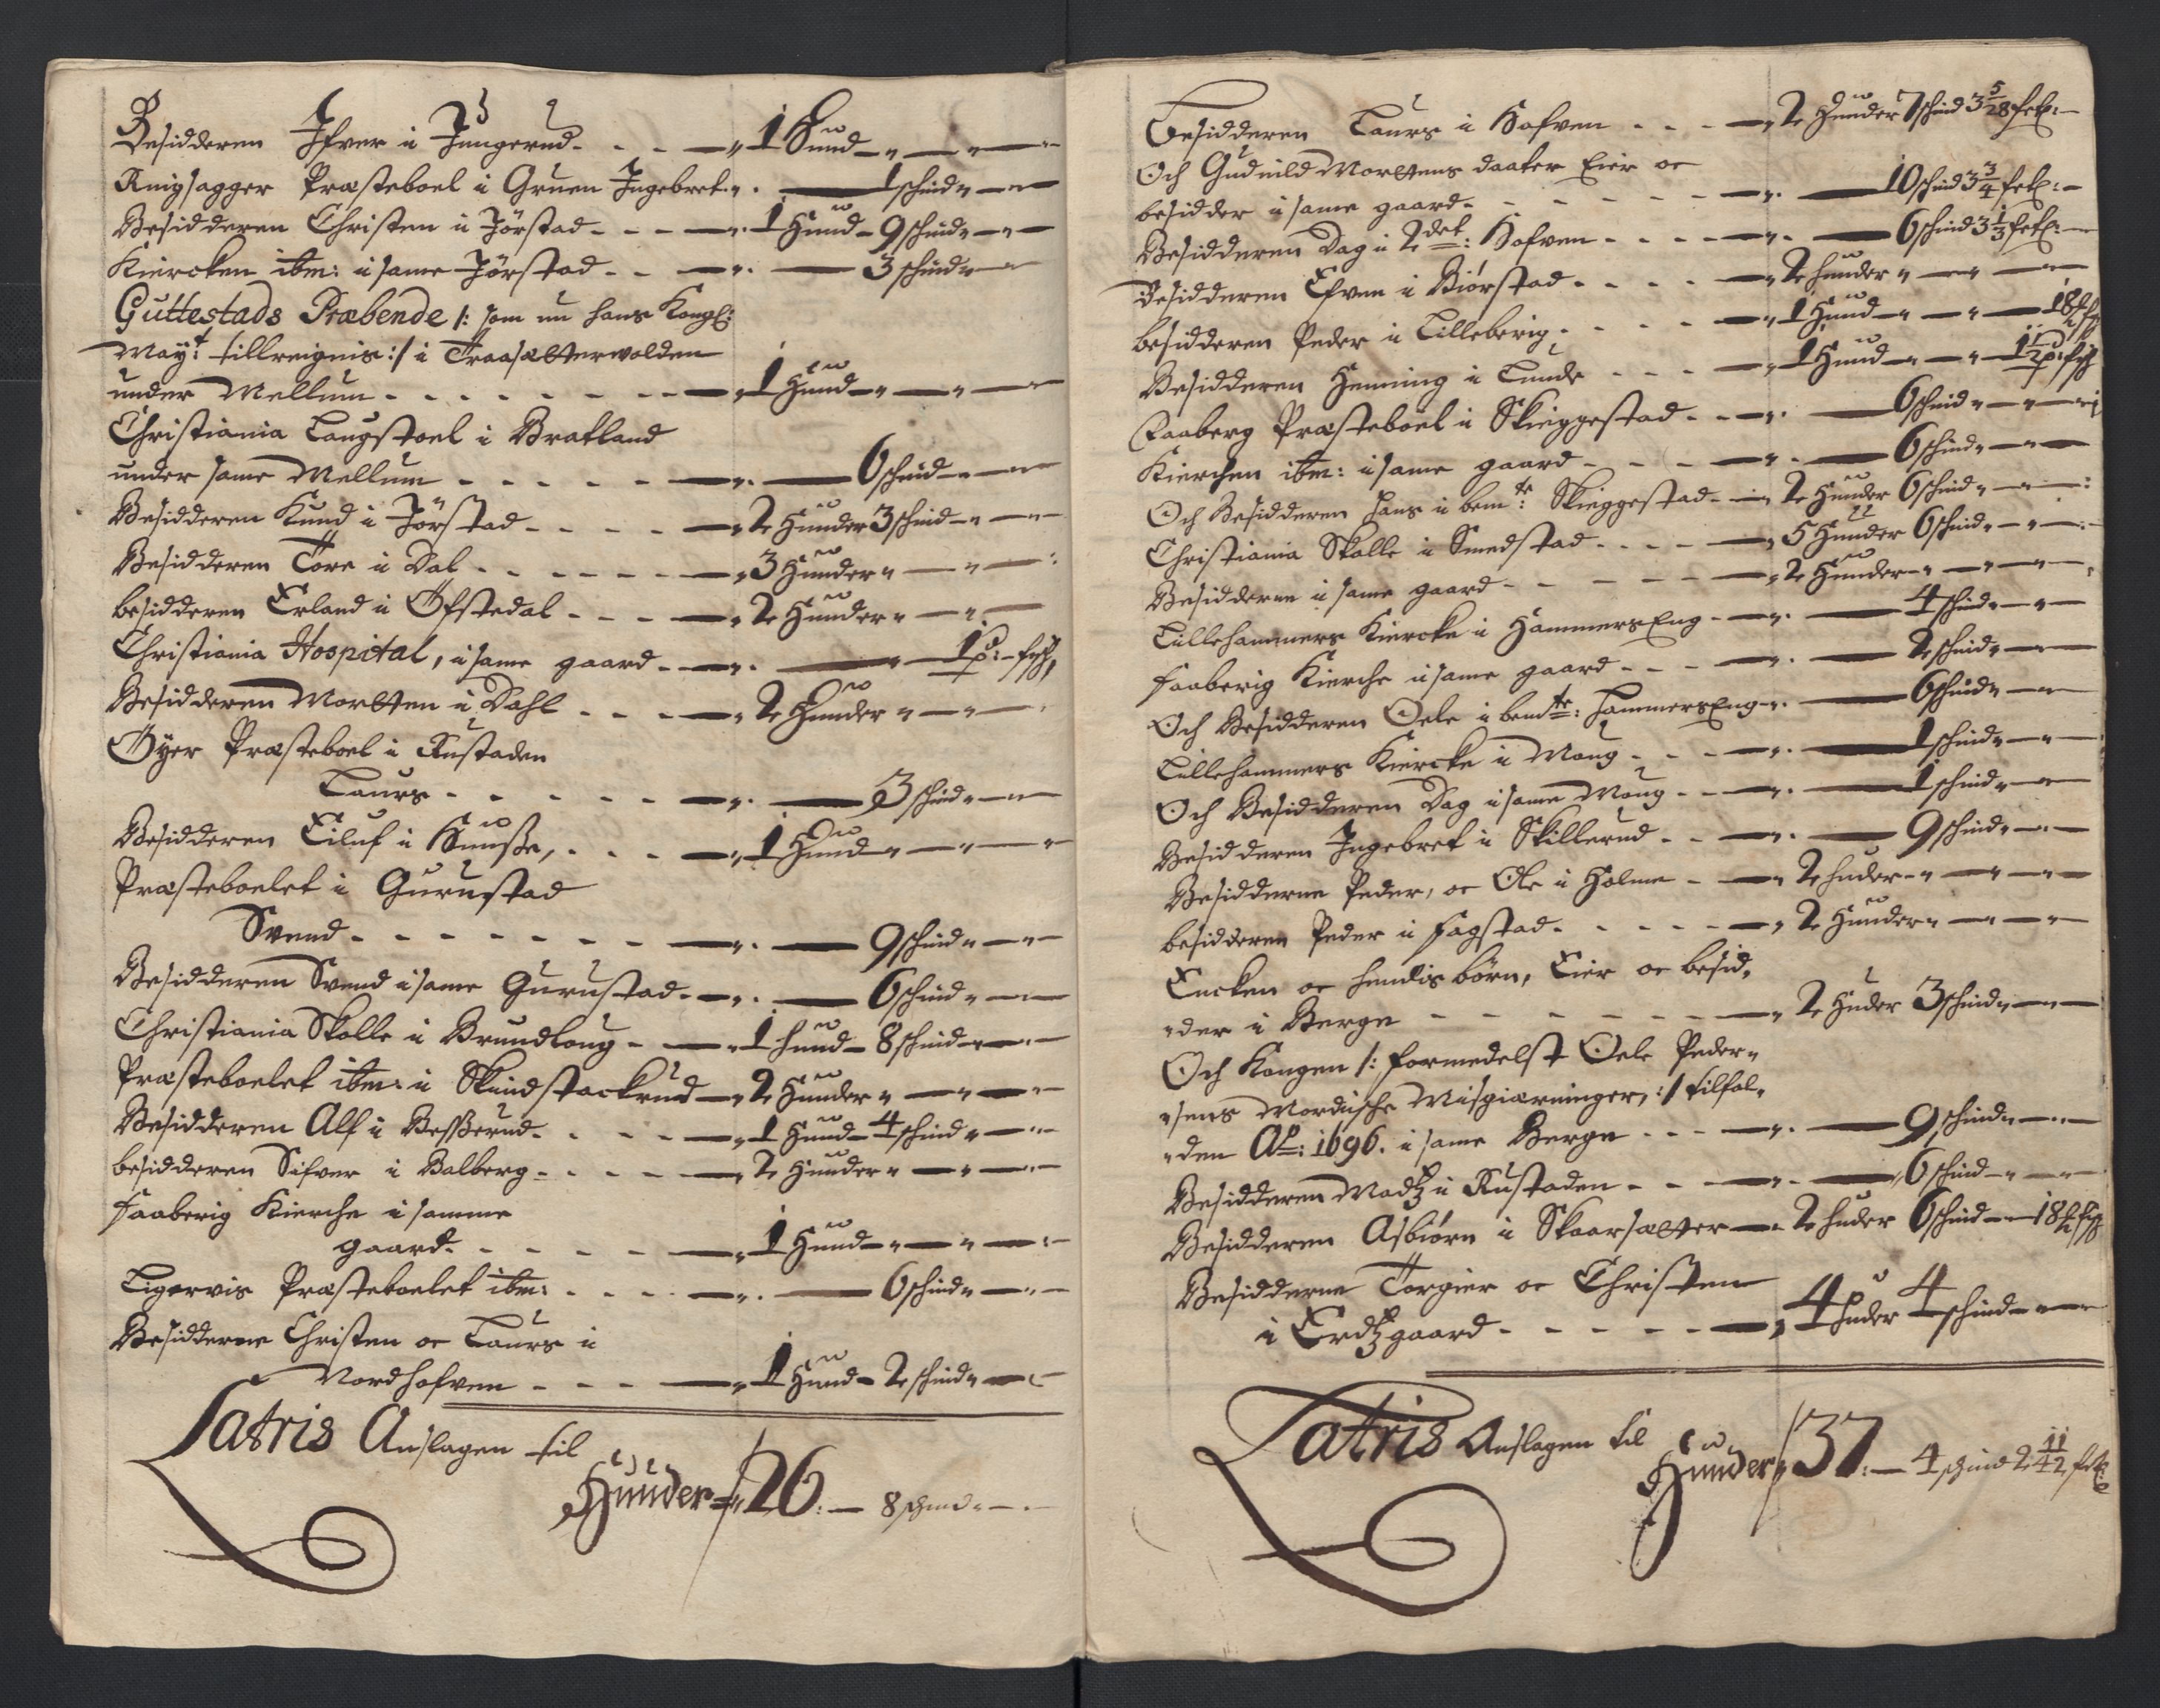 Besidderen Ifver i Jungerud - - - 1 Hund
Ringsagger Præsteboel i Gruen Ingebret - 1 schind
Besidderen Christen i Jörstad - - - 1 Hund - 9 schind
Kiercken ibm: i same Jörstad - - 3 schind
Guttestads Præbende /: som nu hans Kongl:
Mayt: tillreignis :/ i Traasætterwolden
under Mellum - - - - - 1 Hund
Christiania Laugstoel i Bratland
under same Mellum - - - - - 6 schind
Besidderen Knud i Jörstad - - - - 2 Hunder 3 schind
Besidderen Tore i Dal - - - - - 3 Hunder
besidderen Erland i Öfstedal - - - 2 Hunder
Christiania Hospital, i same gaard - - 1 p: - fisch
Besidderen Mortten i Dahl - - - 2 Hunder
Öyer Præsteboel i Rustaden
Laurs - - - - - 3 schind
Besidderen Eiluf i Hunsße, - - - 1 Hund
Præsteboelet i Gurustad
Svend - - - - - - - 9 schind
Besidderen Svend i same Gurustad - - 6 schind
Christiania Skolle i Brundloug - 1 hund - 8 schind
Præsteboelet ibm: i Skundstackrud - 2 Hunder
Besidderen Alf i Besßerud - - - - 1 Hund - 4 schind
besidderen Sifver i Balberg - - - - 2 Hunder
faaberig Kierche i samme
gaard - - - - - 1 Hund
Ligervis Præsteboelet ibm: - - - 6 schind
Besidderne Christen oc Laurs i
Nordhofven - - - 1 Hund - 2 schind
Latris Anslagen til
Hunder 26: - 8 schind
Besidderen Laurs i Hofven - - - 2 Hunder 7 schind 3 5/28 sch:
Och Gudnild Mortens daater Eier oc
besidder i same gaard - - - - - 10 schind 3 3/4 sch:
Besidderen Dag i 2det: Hofven - - - - 6 schind 3 1/3 sch:
Besidderen Efven i Biörstad - - - - 2 hunder
besidderen Peder i Lilleberig - - - - 1 Hund - 18
Besidderen Henning i Lunde - - - 1 Hund - 1 1/2 p: fisch
Faaberg Præsteboel i Skieggestad - - 6 schind
Kierchen ibm: i same gaard - - - 6 schind
Och Besidderen Hans i bemte: Skieggestad - 2 Hunder 6 schind
Christiania Skolle i Smedstad - - - - 5 Hunder 6 schind
Besidderne i same gaard - - - - - 2 Hunder
Lillehammers Kiercke i HammersEng - 4 schind
faaberig Kierche i same gaard - - - 2 schind
Och Besidderen Oele i bemte: HammersEng - 6 schind
Lillehammers Kiercke i Moug - - - 1 schind
Och Besidderen Dag i same Moug - - 1 schind
Besidderen Ingebret i Skillerud - - 9 schind
Besidderne Peder, oc Ole i Holme - 2 huder
besidderen Peder i Fagstad - - - - 2 Hunder
Encken oc hendis börn, Eier oc besid,
der i Berge - - - - - - 2 Huder 3 schind
Och Kongen /: formedelst Oele Peder,
sens Mordische Misgierninger, :/ tilfal,
den Ao: 1696. i same Berge - - - 9 schind
Besidderen Madtz i Rustaden - - 6 schind
Besidderen Asbiörn i Skaarsætter - 2 huder 6 schind - 18
Besidderne Torgier oc Christen
i Erdtzgaard - - - - - 4 huder 4 schind
Latris Anslagen til
Hunder 37: - 4 schind 2 11/42 sch: